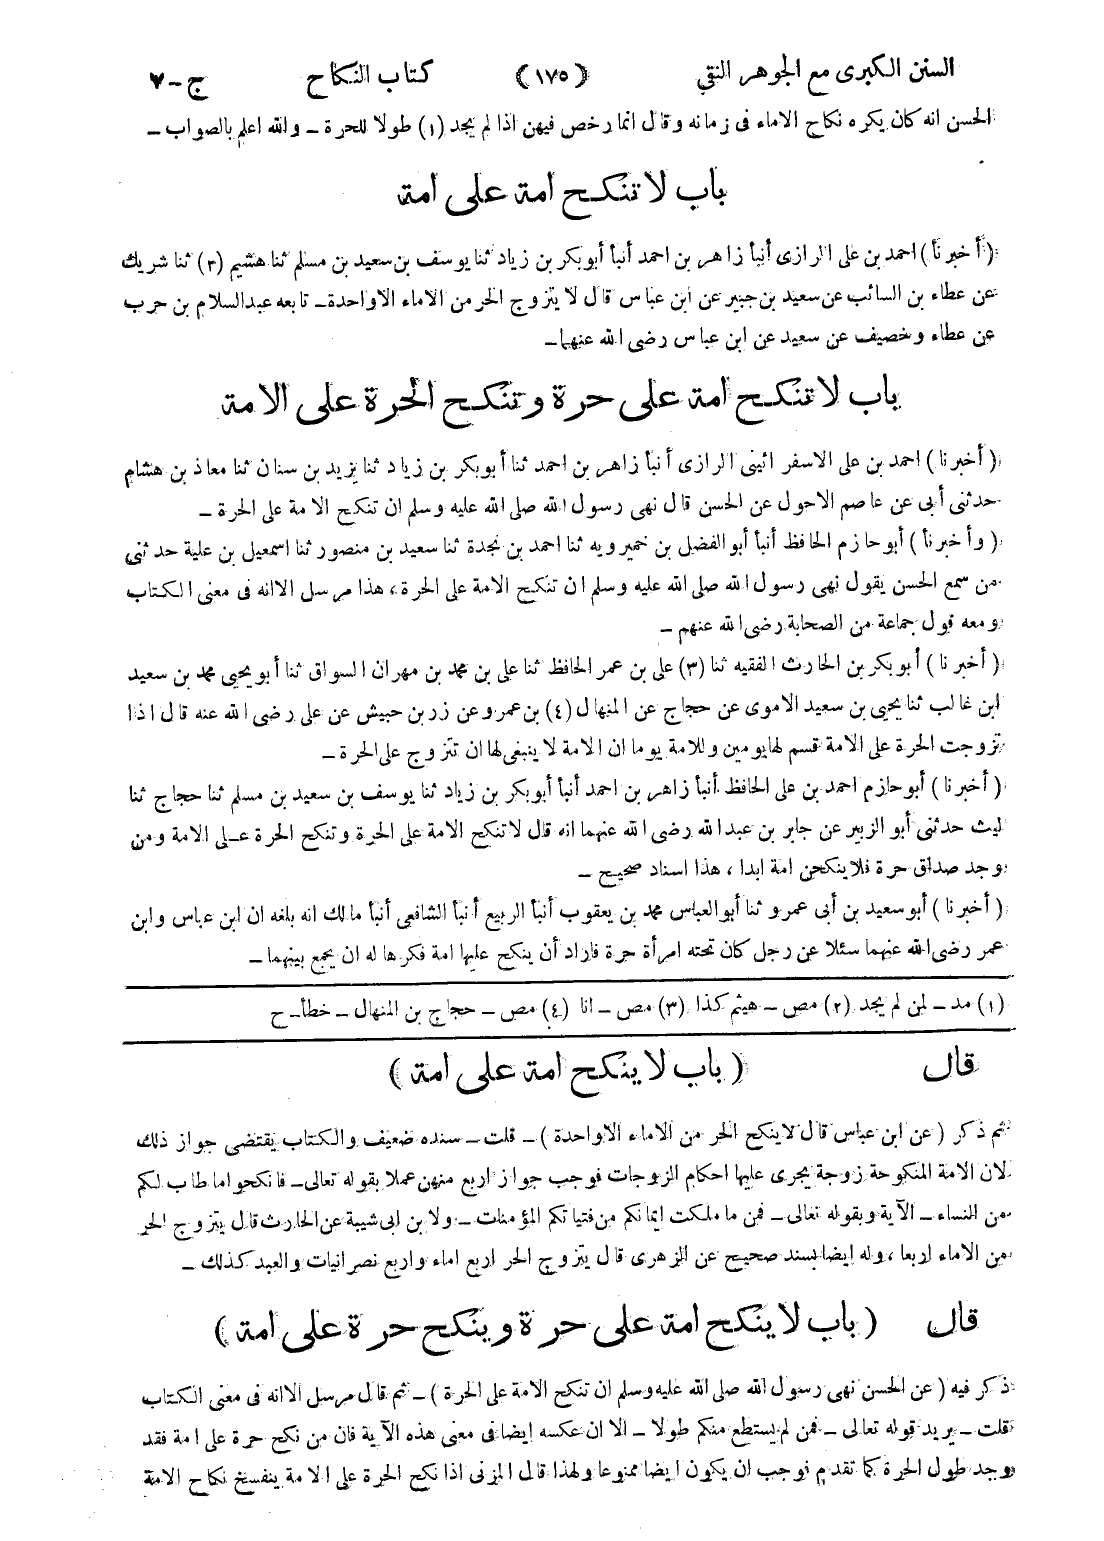 السنن الكبرى مع الجوهر النقي (١٧٥) كتاب النكاح ج-٧
الحسن انه كان يكره نكاح الاماء فى زمانه وقال انما رخص فيهن اذا لم يجد (١) طولا للحرة ـ والله اعلم بالصواب ـ
باب لا تنكح امة على امة
(أخبرنا) احمد بن على الرازى أنبأ زاهر بن احمد أنبأ أبوبكر بن زياد ثنا يوسف بن سعيد بن مسلم ثنا هشيم (٢) ثنا شريك
عن عطاء بن السائب عن سعيد بن جبير عن ابن عباس قال لا يتزوج الحر من الاماء الا واحدة ـ تابعه عبدالسلام بن حرب
عن عطاء وخصيف عن سعيد عن ابن عباس رضى الله عنهما ـ
باب لا تنكح امة على حرة وتنكح الحرة على الامة
(أخبرنا) احمد بن على الاسفرائينى الرازى أنبأ زاهر بن احمد ثنا أبوبكر بن زياد ثنا يزيد بن سنان ثنا معاذ بن هشام
حدثنى أبى عن عاصم الاحول عن الحسن قال نهى رسول الله صلى الله عليه وسلم ان تنكح الامة على الحرة ـ
(وأخبرنا) أبو حازم الحافظ أنبأ أبو الفضل بن خميرويه ثنا احمد بن نجدة ثنا سعيد بن منصور ثنا اسمعيل بن علية حدثنى
من سمع الحسن يقول نهى رسول الله صلى الله عليه وسلم ان تنكح الامة على الحرة، هذا مرسل الا انه فى معنى الكتاب
ومعه قول جماعة من الصحابة رضى الله عنهم ـ
(أخبرنا) أبو بكر بن الحارث الفقيه ثنا (٣) على بن عمر الحافظ ثنا على بن محمد بن مهران السواق ثنا أبو يحيى محمد بن سعيد
ابن غالب ثنا يحيى بن سعيد الاموى عن حجاج عن المنهال (٤) بن عمرو عن زر بن حبيش عن على رضى الله عنه قال اذا
تزوجت الحرة على الامة قسم لها يومين وللامة يوما ان الامة لا ينبغى لها ان تتزوج على الحرة ـ
(أخبرنا) أبو حازم احمد بن على الحافظ أنبأ زاهر بن احمد أنبأ أبوبكر بن زياد ثنا يوسف بن سعيد بن مسلم ثنا حجاج ثنا
ليث حدثنى أبو الزبير عن جابر بن عبدالله رضى الله عنهما انه قال لا تنكح الامة على الحرة وتنكح الحرة على الامة ومن
وجد صداق حرة فلا ينكحن امة ابدا، هذا اسناد صحيح ـ
(أخبرنا) أبو سعيد بن أبى عمرو ثنا أبو العباس محمد بن يعقوب أنبأ الربيع أنبأ الشافعى أنبأ مالك انه بلغه ان ابن عباس وابن
عمر رضى الله عنهما سئلا عن رجل كان تحته امرأة حرة فاراد أن ينكح عليها امة فكرها له ان يجمع بينهما ـ
(١) مد ـ لمن لم يجد (٢) مص ـ هيثم كذا (٣) مص ـ انا (٤) مص ـ حجاج بن المنهال ـ خطأ ـ ح
قال (باب لا ينكح امة على امة)
ثم ذكر (عن ابن عباس قال لا ينكح الحر من الاماء الا واحدة) ـ قلت ـ سنده ضعيف والكتاب يقتضى جواز ذلك
لان الامة المنكوحة زوجة يجرى عليها احكام الزوجات فوجب جواز اربع منهن عملا بقوله تعالى ـ فانكحوا ما طاب لكم
من النساء ـ الآية وبقوله تعالى ـ فمن ما ملكت ايمانكم من فتياتكم المؤمنات ـ ولابن ابى شيبة عن الحارث قال يتزوج الحر
من الاماء اربعا، وله ايضا بسند صحيح عن الزهرى قال يتزوج الحر اربع اماء واربع نصرانيات والعبد كذلك ـ
قال (باب لا ينكح امة على حرة وينكح حرة على امة)
ذكر فيه (عن الحسن نهى رسول الله صلى الله عليه وسلم ان تنكح الامة على الحرة) ـ ثم قال مرسل الا انه فى معنى الكتاب
قلت ـ يريد قوله تعالى ـ فمن لم يستطع منكم طولا ـ الا ان عكسه ايضا فى معنى هذه الآية فان من نكح حرة على امة فقد
وجد طول الحرة كما تقدم فوجب ان يكون ايضا ممنوعا ولهذا قال المزنى اذا نكح الحرة على الامة ينفسخ نكاح الامة